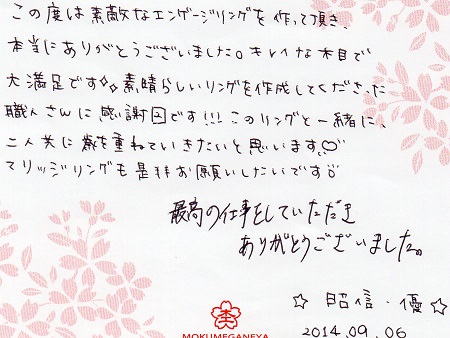 この度は素敵なエンゲージリングを作って頂き、
本当にありがとうございました。キレイな木目で
大満足です✧✧素晴らしいリングを作成してくださった
職人さんに感謝図です!!!このリングと一緒に、
二人共に歳を重ねていきたいと思います♡
マリッジリングも是非お願いしたいです
最高の仕事をしていただき
ありがとうございました。
☆ 昭信・優☆
MOKUMEGANEYA
2014.09.06